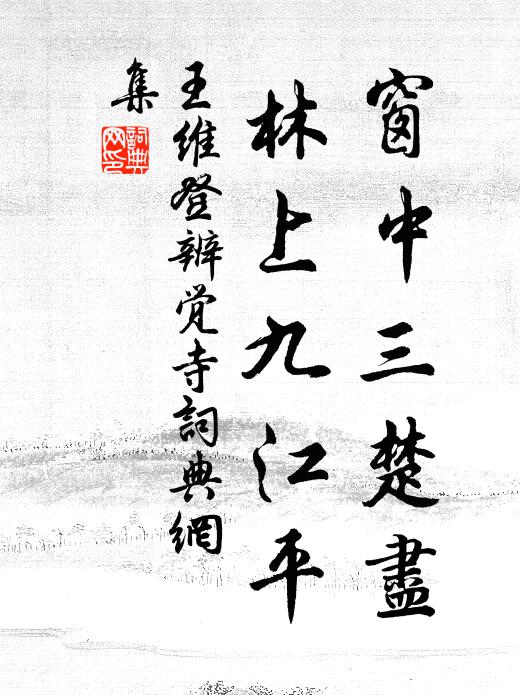 窗中三楚盡
林上九江平
王維登辨覚寺詞典網
集
詞典
网印